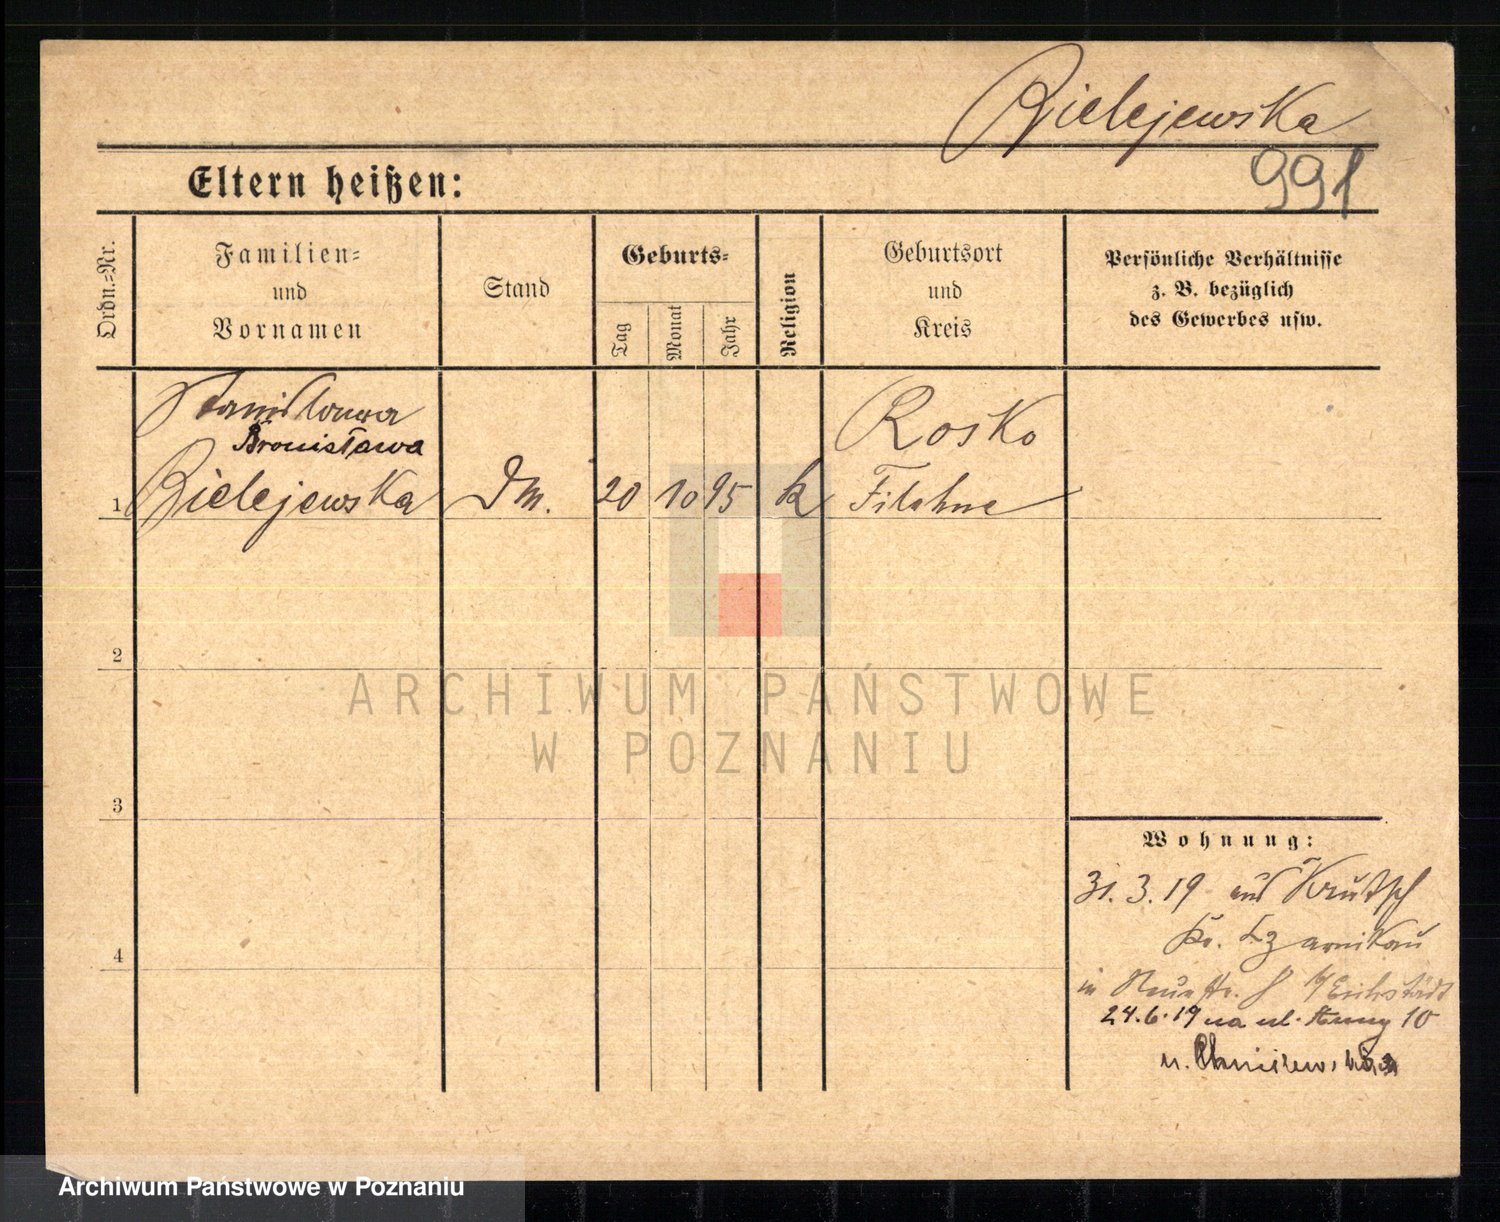 Bielejewska
991
Eltern heißen:
Ordn.-Nr.
Familien-
und
Vornamen
Stand
Geburts-
Tag
Monat
Jahr
Religion
Geburtsort
und
Kreis
Persönliche Verhältnisse
z. B. bezüglich
des Gewerbes usw.
Stanislawa
Bronisława
1 Bielejewska Dm. 20 10 95 k
Rosko
Filehne
2
3
4
Wohnung:
31.3.19 aus
Kr. Czarnikau
in
24.6.19 na ul. 10
u.
ARCHIWUM PAŃSTWOWE
W POZNANIU
Archiwum Państwowe w Poznaniu